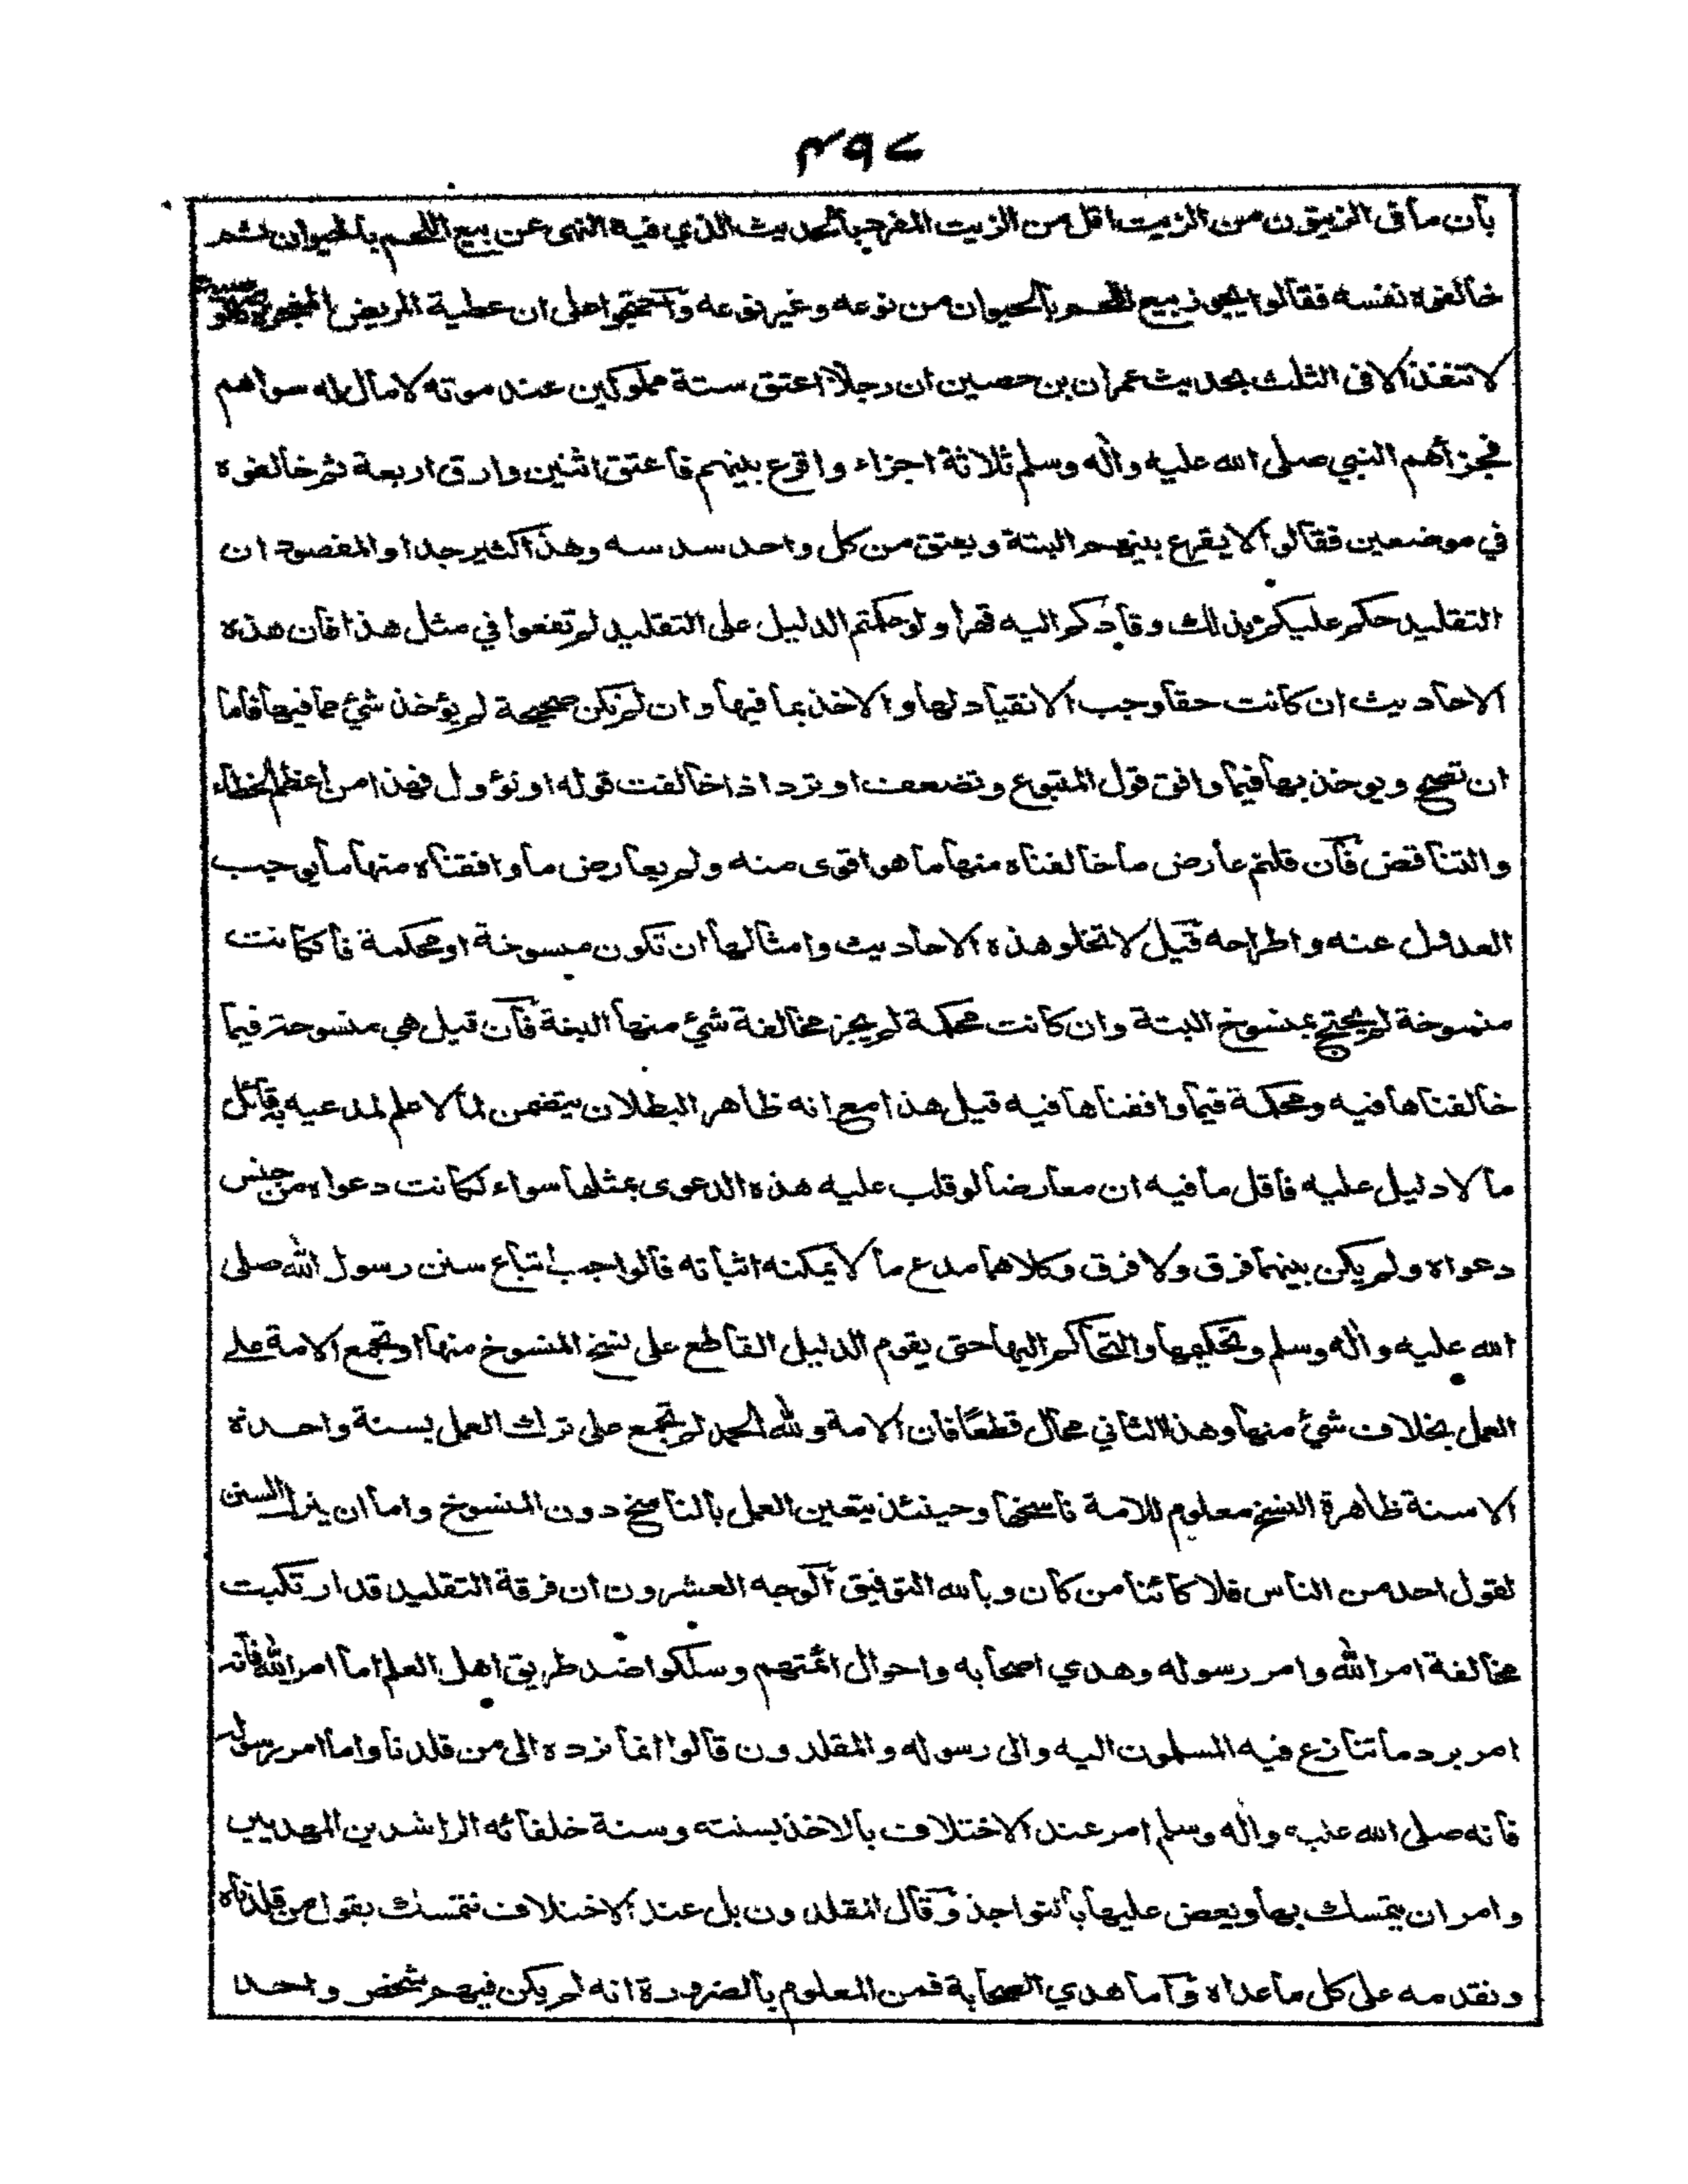 ٤٩٧
بأن ما فى الزيتون من الزيت اقل من الزيت المفرد بالحديث الذي فيه النهى عن بيع اللحم بالحيوان ثم
خالفوه نفسه فقالوا يجوز بيع اللحم بالحيوان من نوعه وغير نوعه واحتجوا على ان عطية المريض المنجزة
لا تنفذ الا فى الثلث بحديث عمران بن حصين ان رجلا اعتق ستة مملوكين عند موته لا مال له سواهم
فجزأهم النبي صلى الله عليه واٰله وسلم ثلاثة اجزاء واقرع بينهم فاعتق اثنين وارق اربعة ثم خالفوه
في موضعين فقالوا لا يقرع بينهم البتة ويعتق من كل واحد سدسه وهذا كثير جدا والمقصود ان
التقليد حكم عليكم بذلك وقادكم اليه قهرا ولو حكمتم الدليل على التقليد لم تقعوا في مثل هذا فان هذه
الاحاديث ان كانت حقا وجب الانقياد لها والاخذ بما فيها وان لم تكن صحيحة لم يؤخذ شئ مما فيها فاما
ان تصح ويوخذ بها فيما وافق قول المتبوع وتضعف او ترد اذا خالفت قوله او تؤول فهذا من اعظم الخطاء
والتناقض فان قلتم عارض ما خالفناه منها ما هو اقوى منه ولم يعارض ما وافقناه منها ما يوجب
العدول عنه واطراحه قيل لا تخلو هذه الاحاديث وامثالها ان تكون منسوخة او محكمة فان كانت
منسوخة لم يحتج بمنسوخ البتة وان كانت محكمة لم يجز مخالفة شئ منها البتة فان قيل هي منسوخة فيما
خالفناها فيه ومحكمة فيما وافقناها فيه قيل هذا مع انه ظاهر البطلان يتضمن لما لا علم لمدعيه به قائل
ما لا دليل عليه فاقل ما فيه ان معارضا لو قلب عليه هذه الدعوى بمثلها سواء لكانت دعواه من جنس
دعواه ولم يكن بينهما فرق ولا فرق وكلاهما مدع ما لا يمكنه اثباته فالواجب اتباع سنن رسول الله صلى
الله عليه واٰله وسلم وتحكيمها والتحاكم اليها حتى يقوم الدليل القاطع على نسخ المنسوخ منها او تجمع الامة على
العمل بخلاف شئ منها وهذا الثاني محال قطعًا فان الامة ولله الحمد لم تجمع على ترك العمل بسنة واحدة
الا سنة ظاهرة النسخ معلوم للامة ناسخها وحينئذ يتعين العمل بالناسخ دون المنسوخ واما ان يترك السنن
لقول احد من الناس فلا كائنا من كان وبالله التوفيق الوجه العشرون ان فرقة التقليد قد ارتكبت
مخالفة امر الله وامر رسوله وهدي اصحابه واحوال ائمتهم وسلكوا ضد طريق اهل العلم اما امر الله فانه
امر برد ما تنازع فيه المسلمون اليه والى رسوله والمقلدون قالوا انما نرده الى من قلدنا واما امر رسوله
فانه صلى الله عليه واٰله وسلم امر عند الاختلاف بالاخذ بسنته وسنة خلفائه الراشدين المهديين
وامر ان يتمسك بها ويعض عليها بالنواجذ وقال المقلدون بل عند الاختلاف نتمسك بقول من قلدناه
ونقدمه على كل ما عداه واما هدي الصحابة فمن المعلوم بالضرورة انه لم يكن فيهم شخص واحد